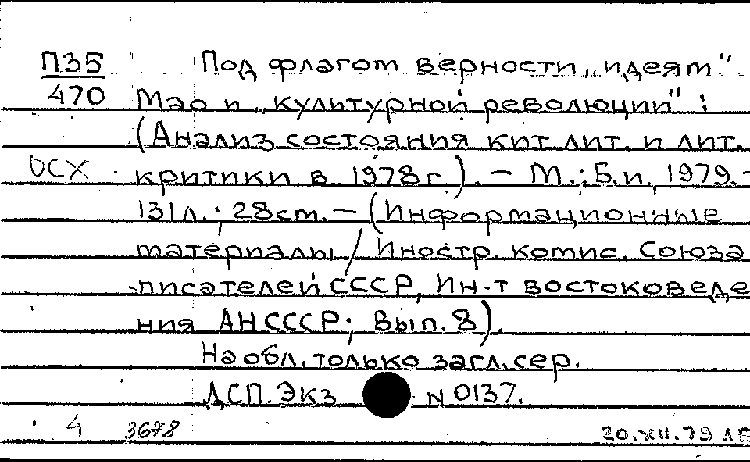 П35 Под флагом верности „идеям"
470 Мао и „культурной революции":
(Анализ состояния кит. лит. и лит.
ОСХ критики в 1978 г.). - М.: Б.и, 1979. -
131 л.; 28 cm. - (Информационные
материалы / Иностр. комис. Союза
писателей СССР, Ин-т востоковеде
ния АН СССР; Вып. 8).
На обл. только загл. сер.
ДСП. Экз N 0137.
4 3678 20.XII.79